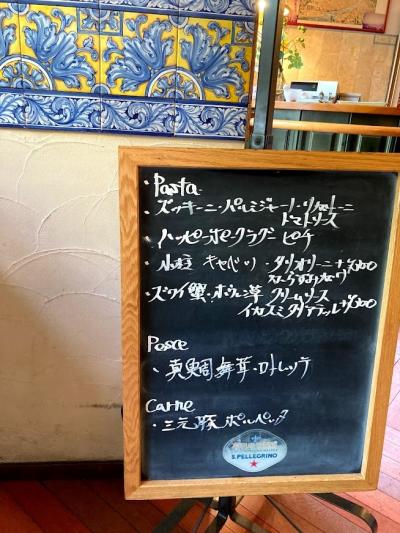 ・Pasta
・ズッキーニ・パルミジャーノ・リガトーニ
トマトソース
・ハッピーポークラグー ピチ
・小柱 キャベツ・タリオリーニ +¥300
からすみがけ
・ズワイ蟹・ホウレン草 クリームソース
イカスミタリアテッレ +¥300
Pesce
・真鯛 舞茸・コトレッテ
Carne
・三元豚 ポルペッタ
S.PELLEGRINO